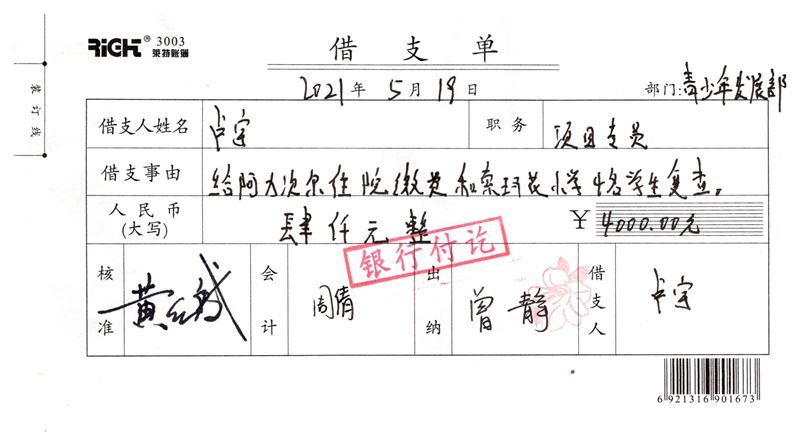 RiGHT® 3003
莱特账簿
借支单
2021年5月19日
部门:青少年发展部
装订线
借支人姓名 占宇 职务 项目专员
借支事由 给阿力次尔住院缴费和 小学4名学生复查。
人民币(大写) 肆仟元整 ¥ 4000.00元
银行付讫
核准 黄 会计 周倩 出纳 曾静 借支人 占宇
6 921316 901673